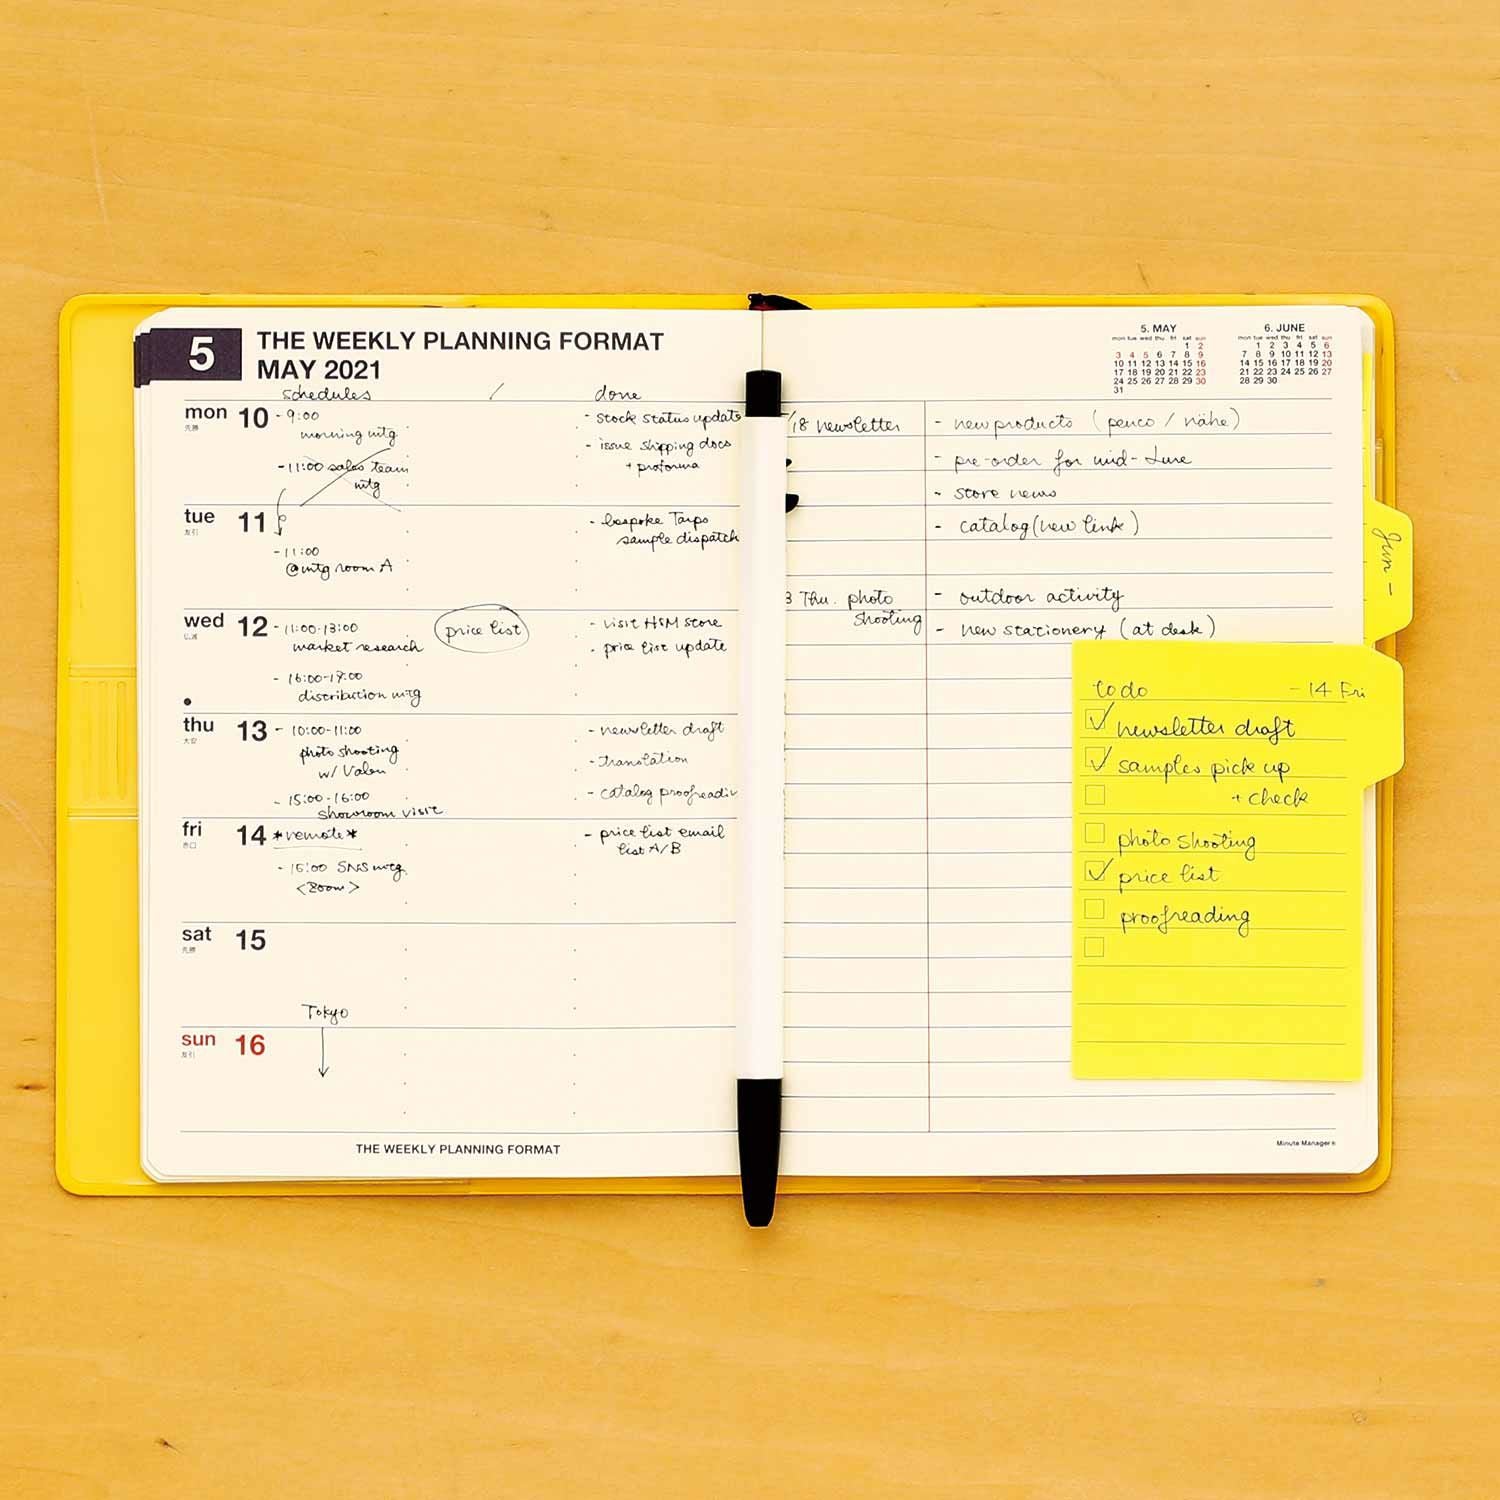 5
THE WEEKLY PLANNING FORMAT
MAY 2021
schedules / done
mon 10
先勝
- 9:00
morning mtg
- 11:00 sales team
mtg
- stock status update
- issue shipping docs
+ proforma
tue 11
友引
- 11:00
@mtg room A
- bespoke Tarps
sample dispatch
wed 12
仏滅
- 11:00-13:00
market research
- 16:00-17:00
distribution mtg
price list
- visit H&M store
- price list update
thu 13
大安
- 10:00-11:00
photo shooting
w/
- 15:00-16:00
showroom visit
- newsletter draft
- translation
- catalog proofreadin
fri 14
赤口
*remote*
- 15:00 SNS mtg
<Zoom>
- price list email
list A/B
sat 15
先勝
Tokyo
sun 16
友引
THE WEEKLY PLANNING FORMAT
5. MAY
mon tue wed thu fri sat sun
1 2
3 4 5 6 7 8 9
10 11 12 13 14 15 16
17 18 19 20 21 22 23
24 25 26 27 28 29 30
31
6. JUNE
mon tue wed thu fri sat sun
1 2 3 4 5 6
7 8 9 10 11 12 13
14 15 16 17 18 19 20
21 22 23 24 25 26 27
28 29 30
/18 newsletter
- new products (penco / nähe)
- pre-order for mid-June
- store news
- catalog (new link)
3 Thu. photo
shooting
- outdoor activity
- new stationery (at desk)
Jun -
to do - 14 Fri
newsletter draft
samples pick up
+ check
photo shooting
price list
proofreading
Minute Manager®